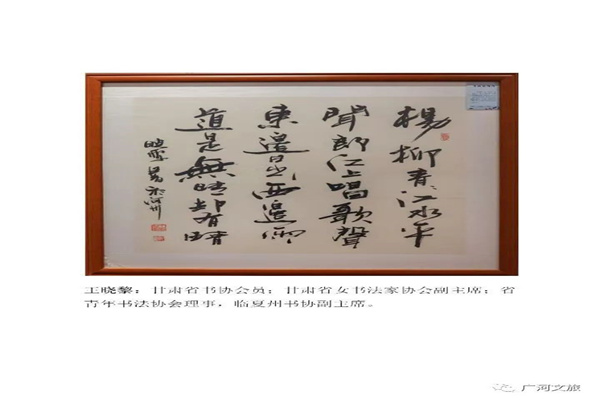 楊柳青〻江水平
聞郎江上唱歌聲
東邊日出西邊雨
道是無晴却有晴
曉黎書於河州
王晓黎：甘肃省书协会员；甘肃省女书法家协会副主席；省
青年书法协会理事，临夏州书协副主席。
广河文旅